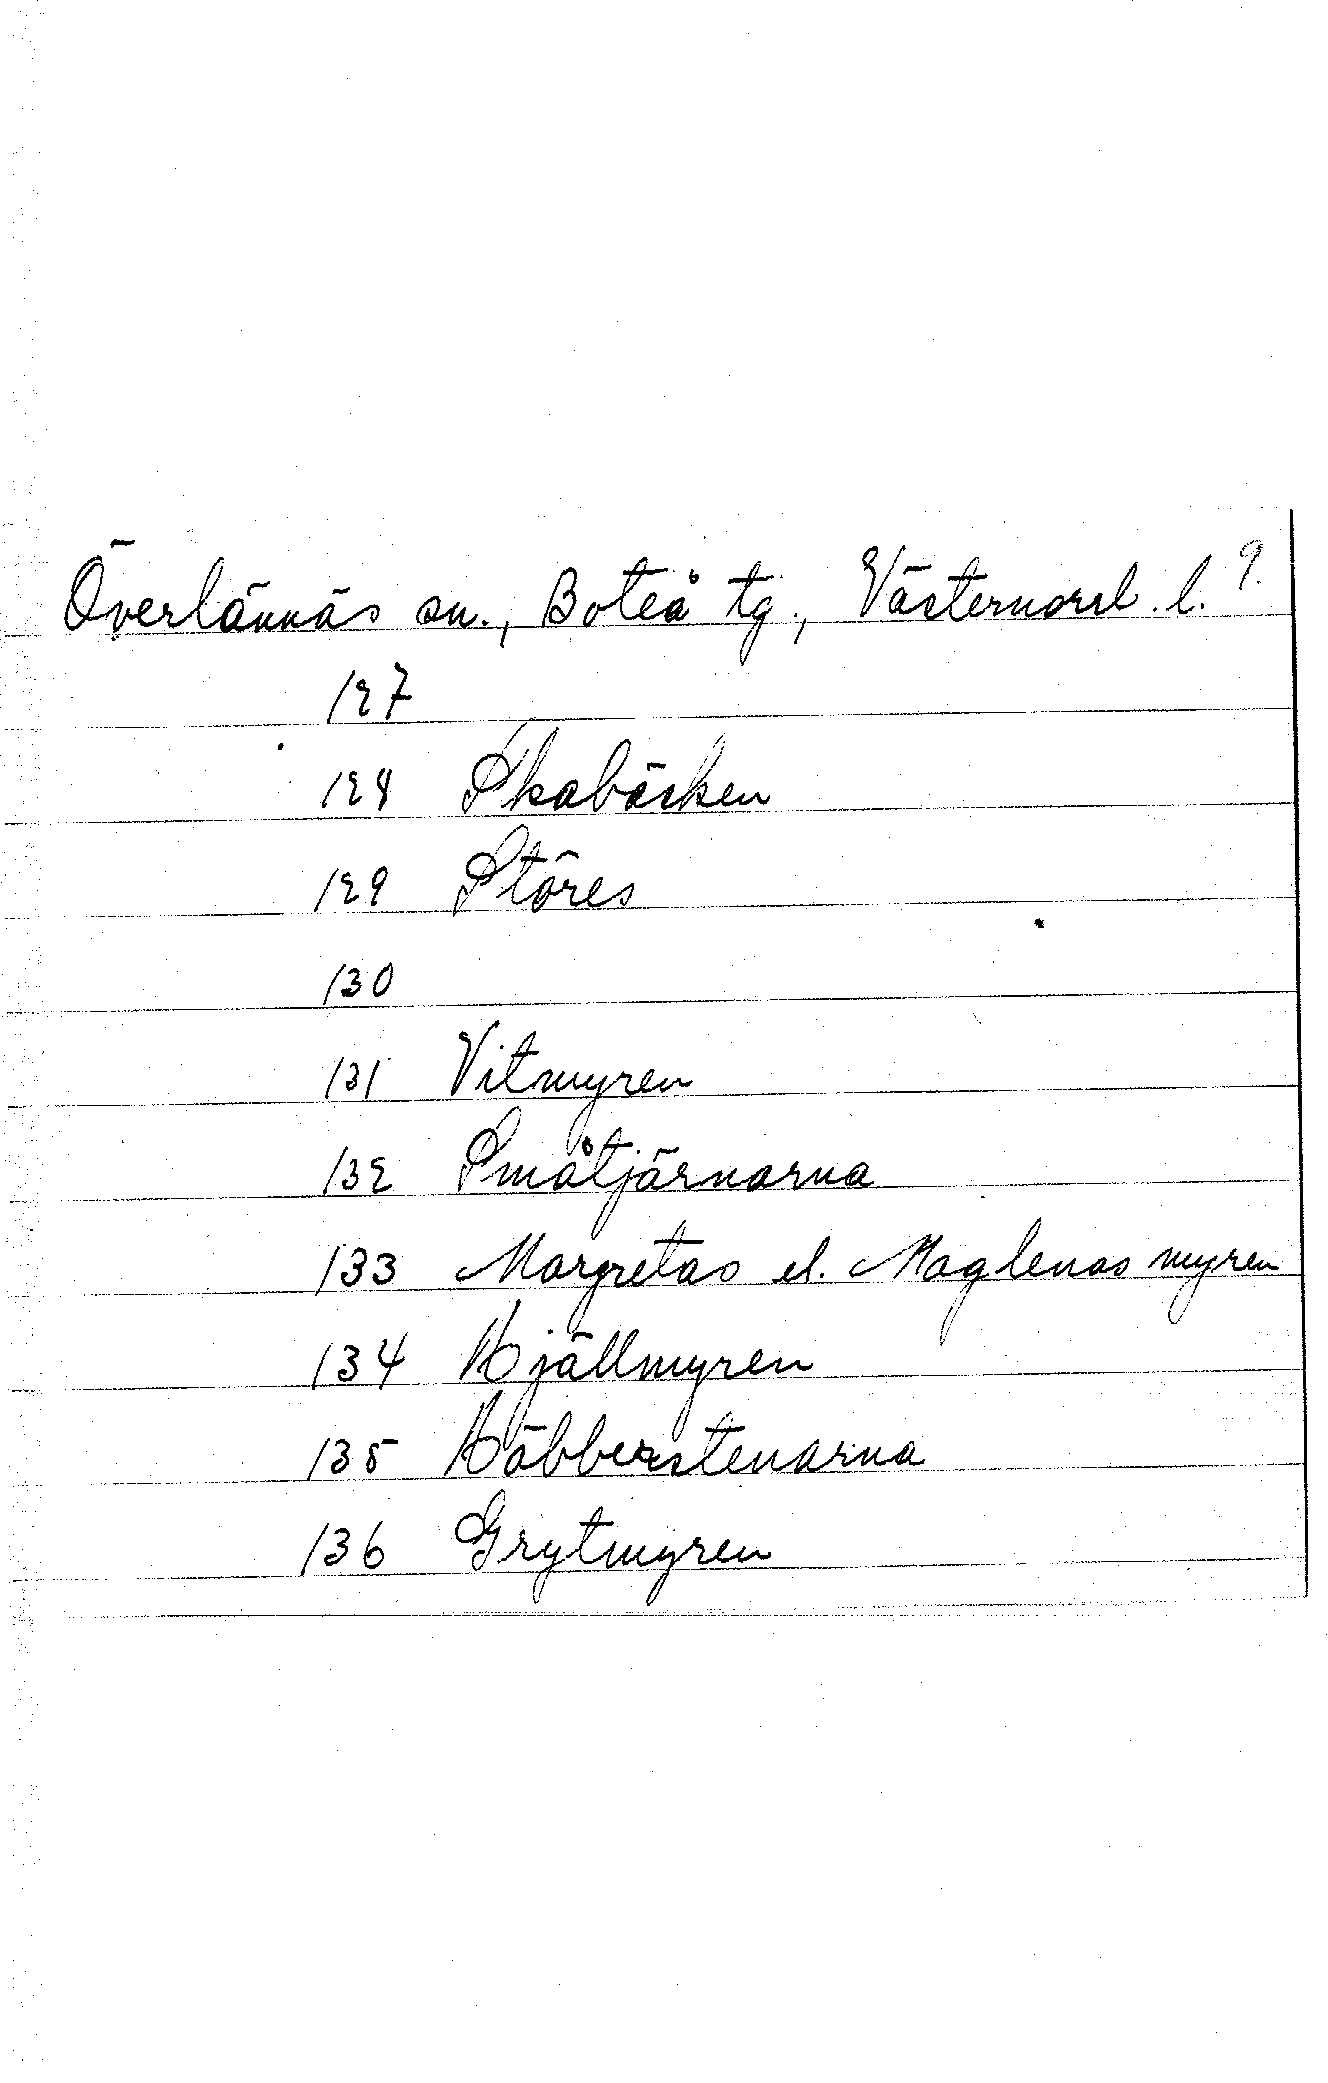 Överlännäs sn., Boteå tg., Västernorrl. l. 9.
127
128 Skabäcken
129 Störes
130
131 Vitmyren
132 Småtjärnarna
133 Margretas el. Maglenas myren
134 Kjällmyren
135 Köbberstenarna
136 Grytmyren